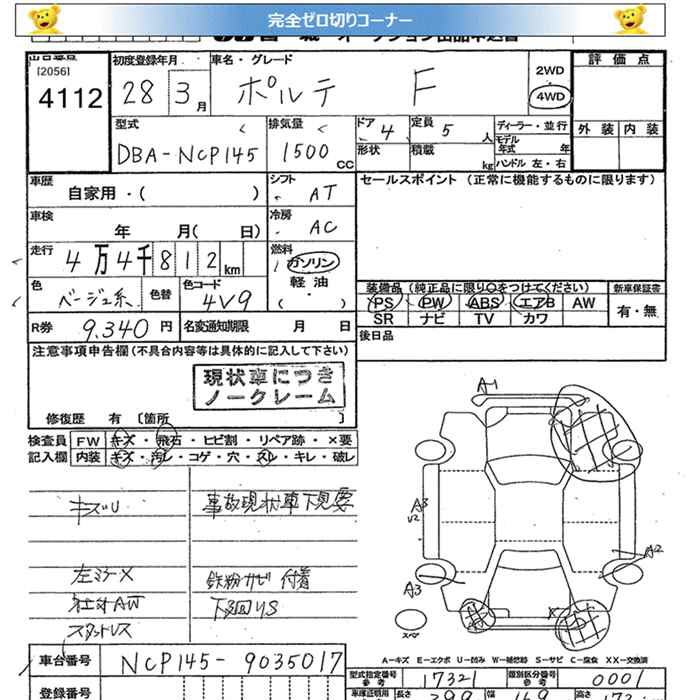 完全ゼロ切りコーナー
[2056]
4112
初度登録年月
28 3月
車名・グレード
ポルテ F
2WD
4WD
評価点
外装 内装
型式
DBA-NCP145
排気量
1500 CC
ドア 4
形状
定員 5 人
積載 kg
ディーラー・並行
モデル年式 年
ハンドル 左・右
車歴
自家用・( )
シフト AT
車検
年 月( 日)
冷房 AC
走行
4万4千812km
燃料
ガソリン
軽油
色
ベージュ系
色替
色コード
4V9
セールスポイント (正常に機能するものに限ります)
装備品 (純正品に限り○をつけてください)
PS PW ABS エアB AW
SR ナビ TV カワ
新車保証書
有・無
R券 9,340円
名変通知期限 月 日
後日品
注意事項申告欄(不具合内容等は具体的に記入して下さい)
現状車につき
ノークレーム
修復歴 有 [箇所 ]
検査員
記入欄
FW キズ・飛石・ヒビ割・リペア跡・×要
内装 キズ・汚レ・コゲ・穴・スレ・キレ・破レ
キズU
事故現状車下見要
左ミラーX
鉄粉サビ 付着
社外AW
下廻りS
スタットレス
A-1
A3
U2
A2
A3
X
スペア
A－キズ E－エクボ U－凹み W－補修跡 S－サビ C－腐食 XX－交換済
車台番号 NCP145-9035017
登録番号
型式指定番号
参考
17321
類別区分番号
参考
0001
車庫証明用
参考
長さ
幅
高さ